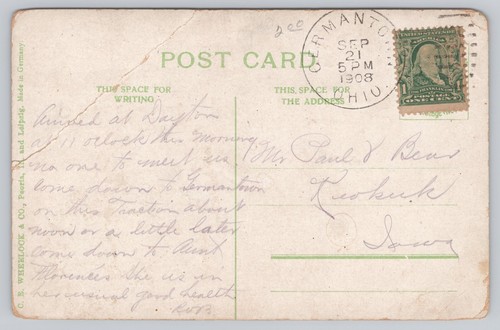 200
POST CARD.
GERMANTOWN
SEP
21
5 PM
1908
OHIO
THIS SPACE FOR
WRITING
THIS SPACE FOR
THE ADDRESS
Arrived at Dayton
at 11 oclock this morning
no one to meet us
come down to Germantown
on this Traction about
noon or a little later
come down to Aunt
Florences she is in
her usual good health
Mr Paul V Bear
Keokuk
Iowa
C. R. WHEELOCK & CO., Peoria, Ill. and Leipzig. Made in Germany.